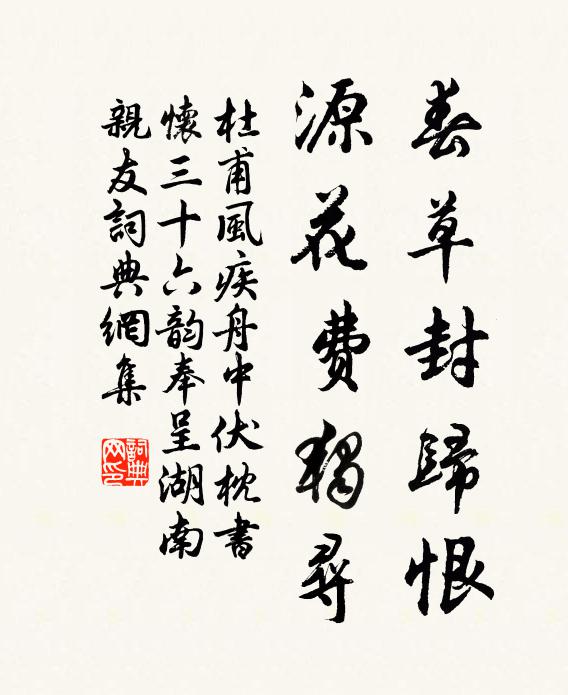 春草封歸恨
源花費獨尋
杜甫風疾舟中伏枕書
懷三十六韵奉呈湖南
親友詞典網集
詞典
网印